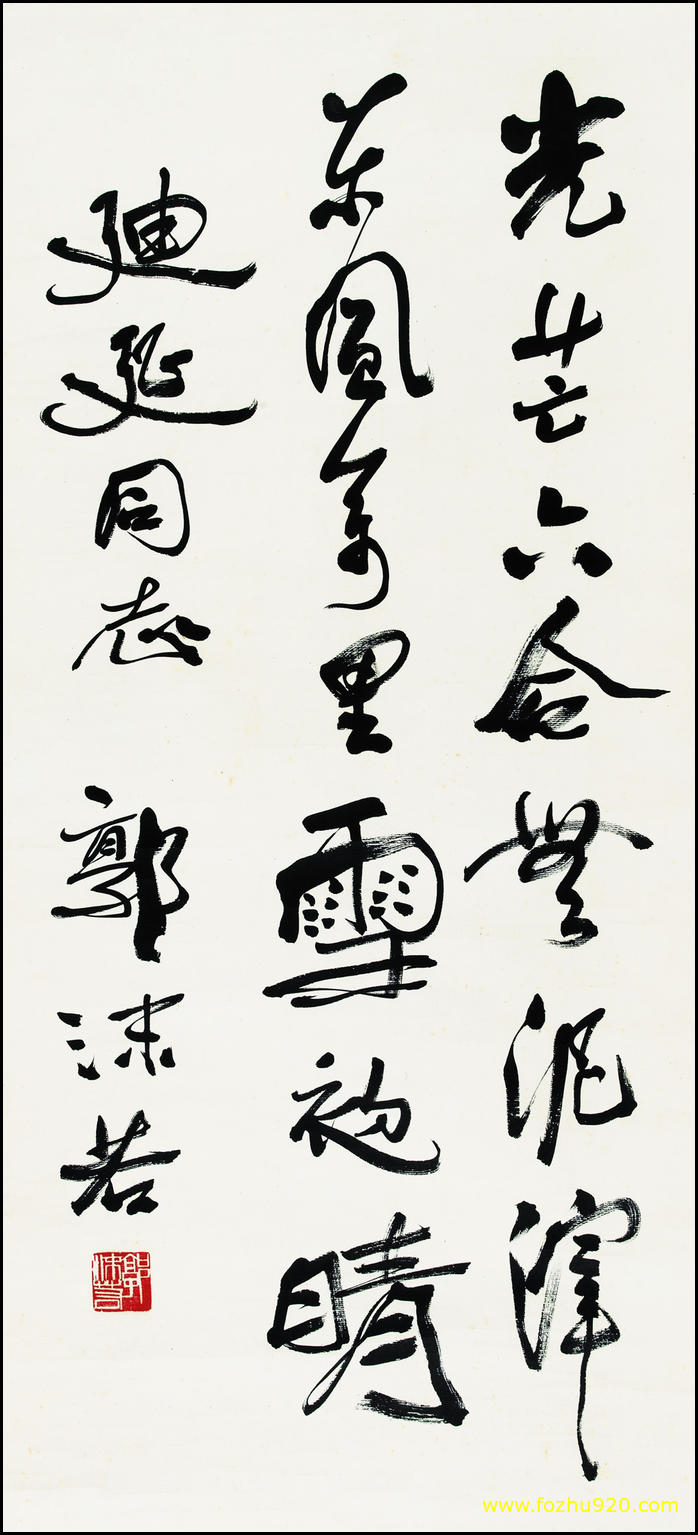 光芒六合無泥滓
東風萬里雪初晴
廸延同志
郭沫若
郭沫若
www.fozhu920.com